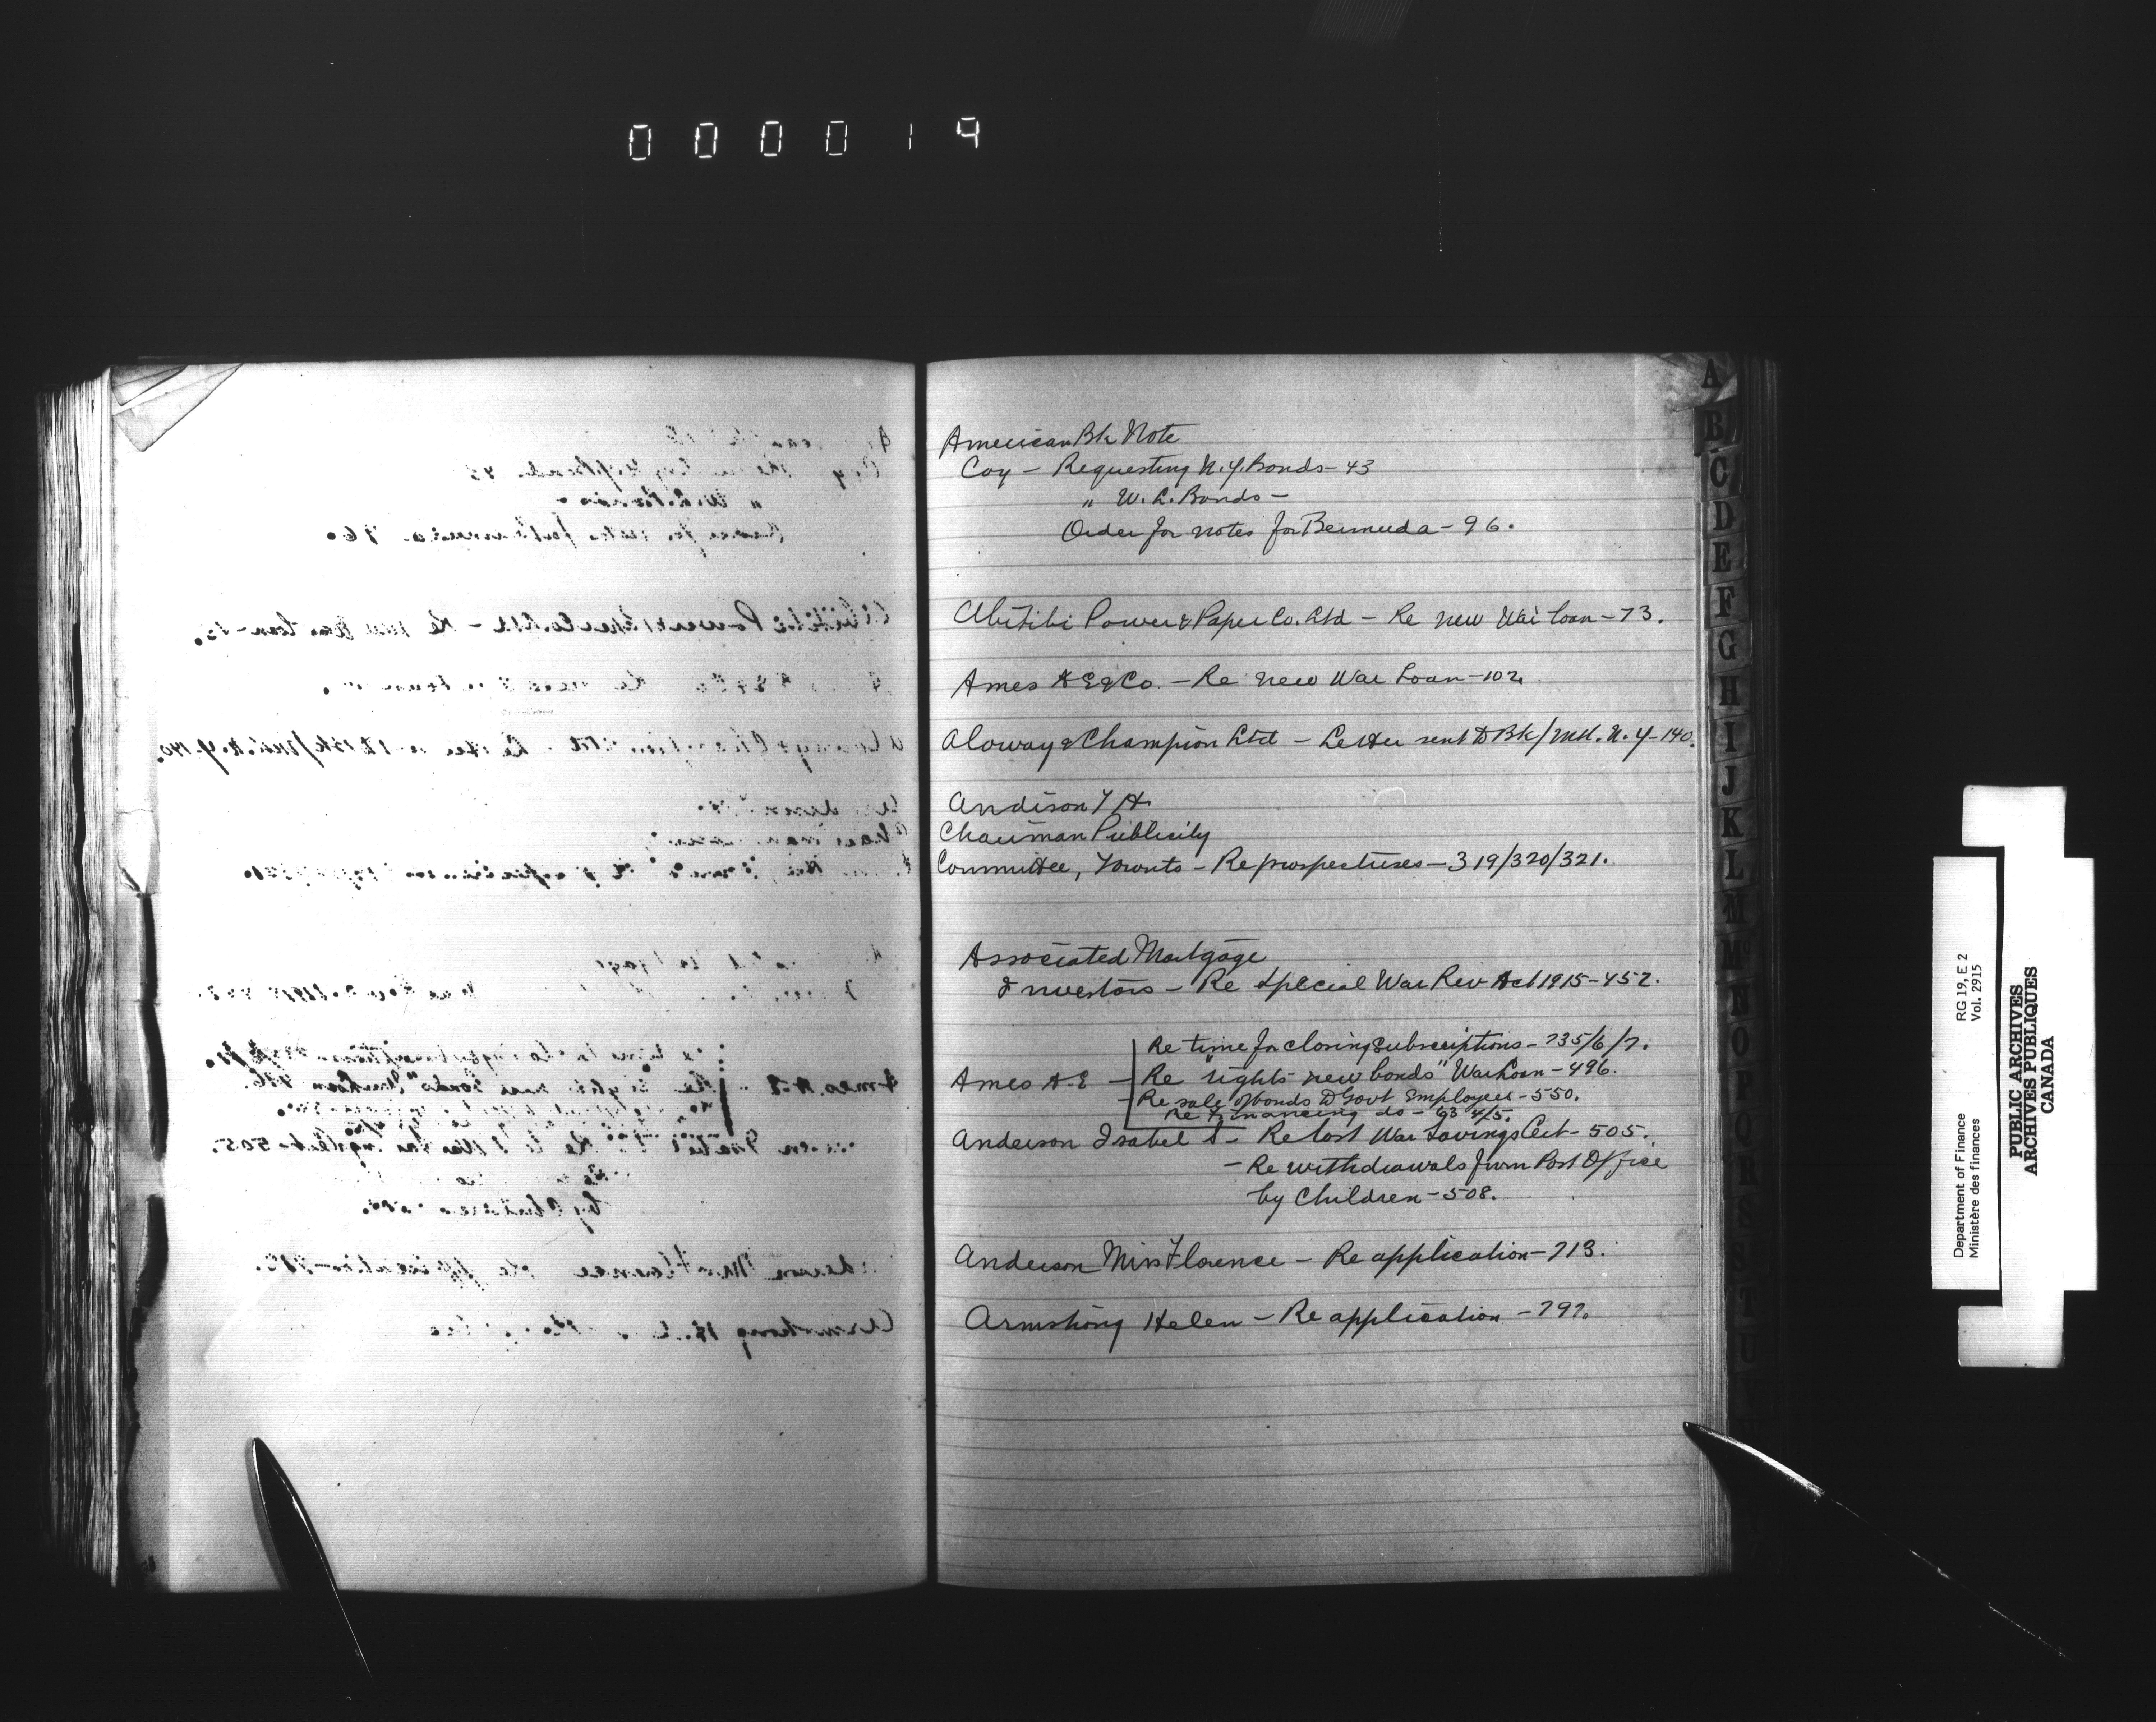 000019
American Bk Note
Coy - Requesting N.Y. Bonds - 43
" W. L. Bonds -
Order for notes for Bermuda - 96.
Abitibi Power & Paper Co. Ltd - Re new War Loan - 73.
Ames A E & Co. - Re new War Loan - 102.
Aloway & Champion Ltd - Letter sent to Bk/Mtl. N.Y - 140.
Andison T H.
Chairman Publicity
Committee, Toronto - Re prospectuses - 319/320/321.
Associated Mortgage
Investors - Re Special War Rev Act 1915 - 452.
Re time for closing subscriptions - 735/6/7.
Ames A. E - Re "rights new bonds" War Loan - 496.
- Re sale of bonds to Govt Employees - 550.
Re Financing do - 63 4/5.
Anderson Isabel S - Re lost War Savings Cert - 505.
- Re withdrawals from Post Office
by Children - 508.
Anderson Miss Florence - Re application - 713.
Armstrong Helen - Re application - 797.
A
B
C
D
E
F
G
H
I
J
K
L
M
Mc
N
O
P
Q
R
S
T
U
RG 19, E 2
Vol. 2915
Department of Finance
Ministère des finances
PUBLIC ARCHIVES
ARCHIVES PUBLIQUES
CANADA